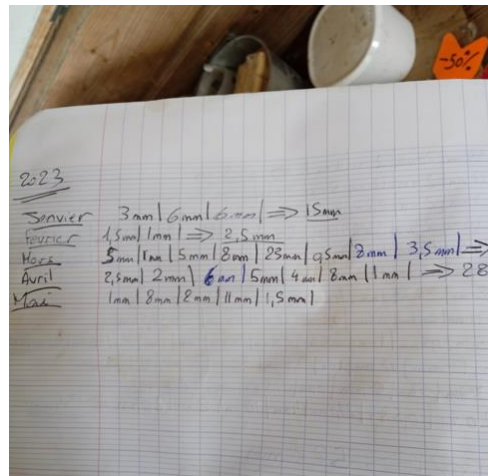 -50%
2023
Janvier 3mm | 6mm | 6mm | => 15mm
Février 1,5mm | 1mm | => 2,5mm
Mars 5mm | 1mm | 5mm | 8mm | 25mm | 0,5mm | 8mm | 3,5mm | =>
Avril 2,5mm | 2mm | 6mm | 5mm | 4mm | 8mm | 1mm | => 28
Mai 1mm | 8mm | 2mm | 11mm | 1,5mm |